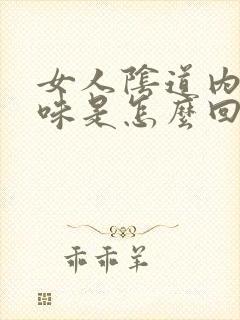 女人陰道內
味是怎麼回
乖乖羊